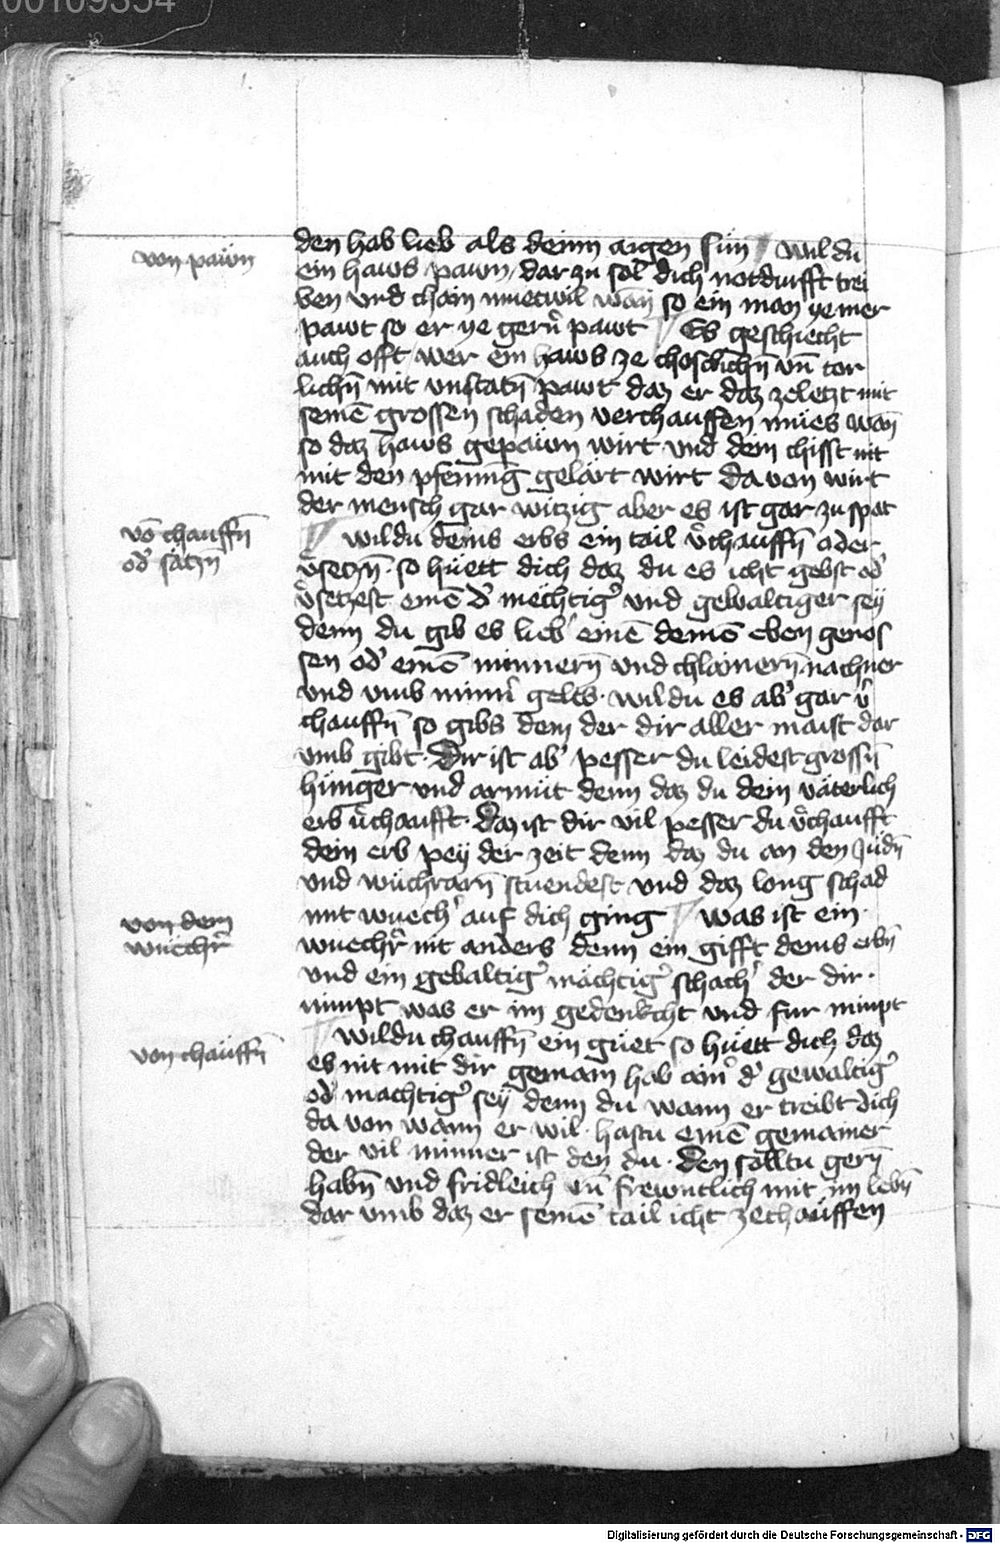 00109354
den hab lieb als deinn aigen sün wildu
von pawn
ein haws pawn dar zu sol dich notdurfft trei
ben vnd chain muetwil wañ so ein man ye mer
pawt so er ye gerñ pawt Es geschiecht
auch offt wer ein haws ze choslichñ vñ tor
lichñ mit vnstatñ pawt daz er daz zeletzt mit
seinē grossen schaden verchauffen mües wañ
so daz haws gepawn wirt vnd dein chisst nit
mit den pfenniḡ gelärt wirt da von wirt
der mensch gar witzig aber es ist gar zu spat
vō chauffñ
od' sätzñ
wildu deins erbs ein tail v'chauffñ oder
v'setzñ so hüett dich daz du es icht gebst od'
v'setzest einē d' mechtig' vnd gewaltiger seÿ
denn du gib es lieb' einē deinē eben genos
sen od' einē minnerñ vnd chlainerñ nachner
vnd vmb minn' gelts wildu es ab' gar v'
chauffñ so gibs dem der dir aller maist dar
vmb gibt Dir ist ab' pesser du leidest grossñ
hünger vnd armüt denn daz du dein väterlich
erb v'chaufft Daz ist dir vil pesser du v'chaufft
dein erb peÿ der zeit denn daz du an den Judñ
vnd wüchrarñ stuendest vnd daz long schad
mit wuech' auf dich ging was ist ein
von dem
wuechr'
wuechr' nit anders denn ein gifft deins erbñ
vnd ein gebaltig' mächtig' schach' der dir
nimpt was er im gedenkcht vnd fur nimpt
von chauffñ
wildu chauffñ ein güet so hüett dich daz
es nit mit dir gemain hab ain' d' gewaltig'
od' machtig' seÿ denn du wann er treibt dich
da von wann er wil hastu einē gemainer
der vil minner ist den du Den solltu gerñ
habñ vnd fridleich vñ frewntlich mit im lebñ
dar vmb daz er seinē tail icht zechauffen
Digitalisierung gefördert durch die Deutsche Forschungsgemeinschaft - DFG